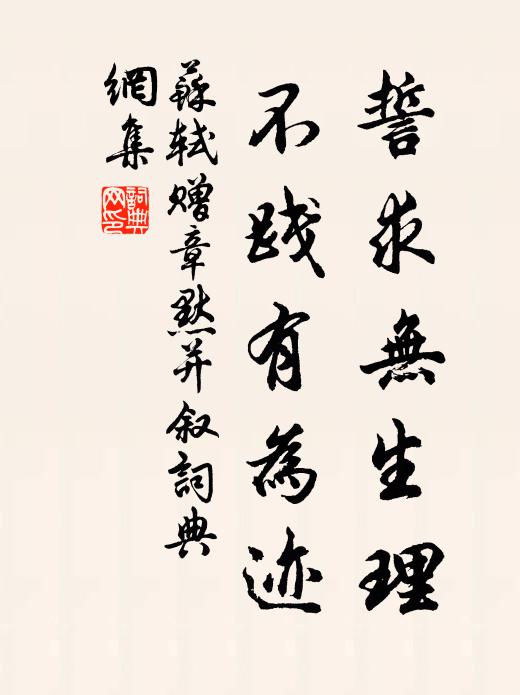 誓求無生理
不踐有為迹
蘇軾贈章默并叙詞典
網集
詞典
网印